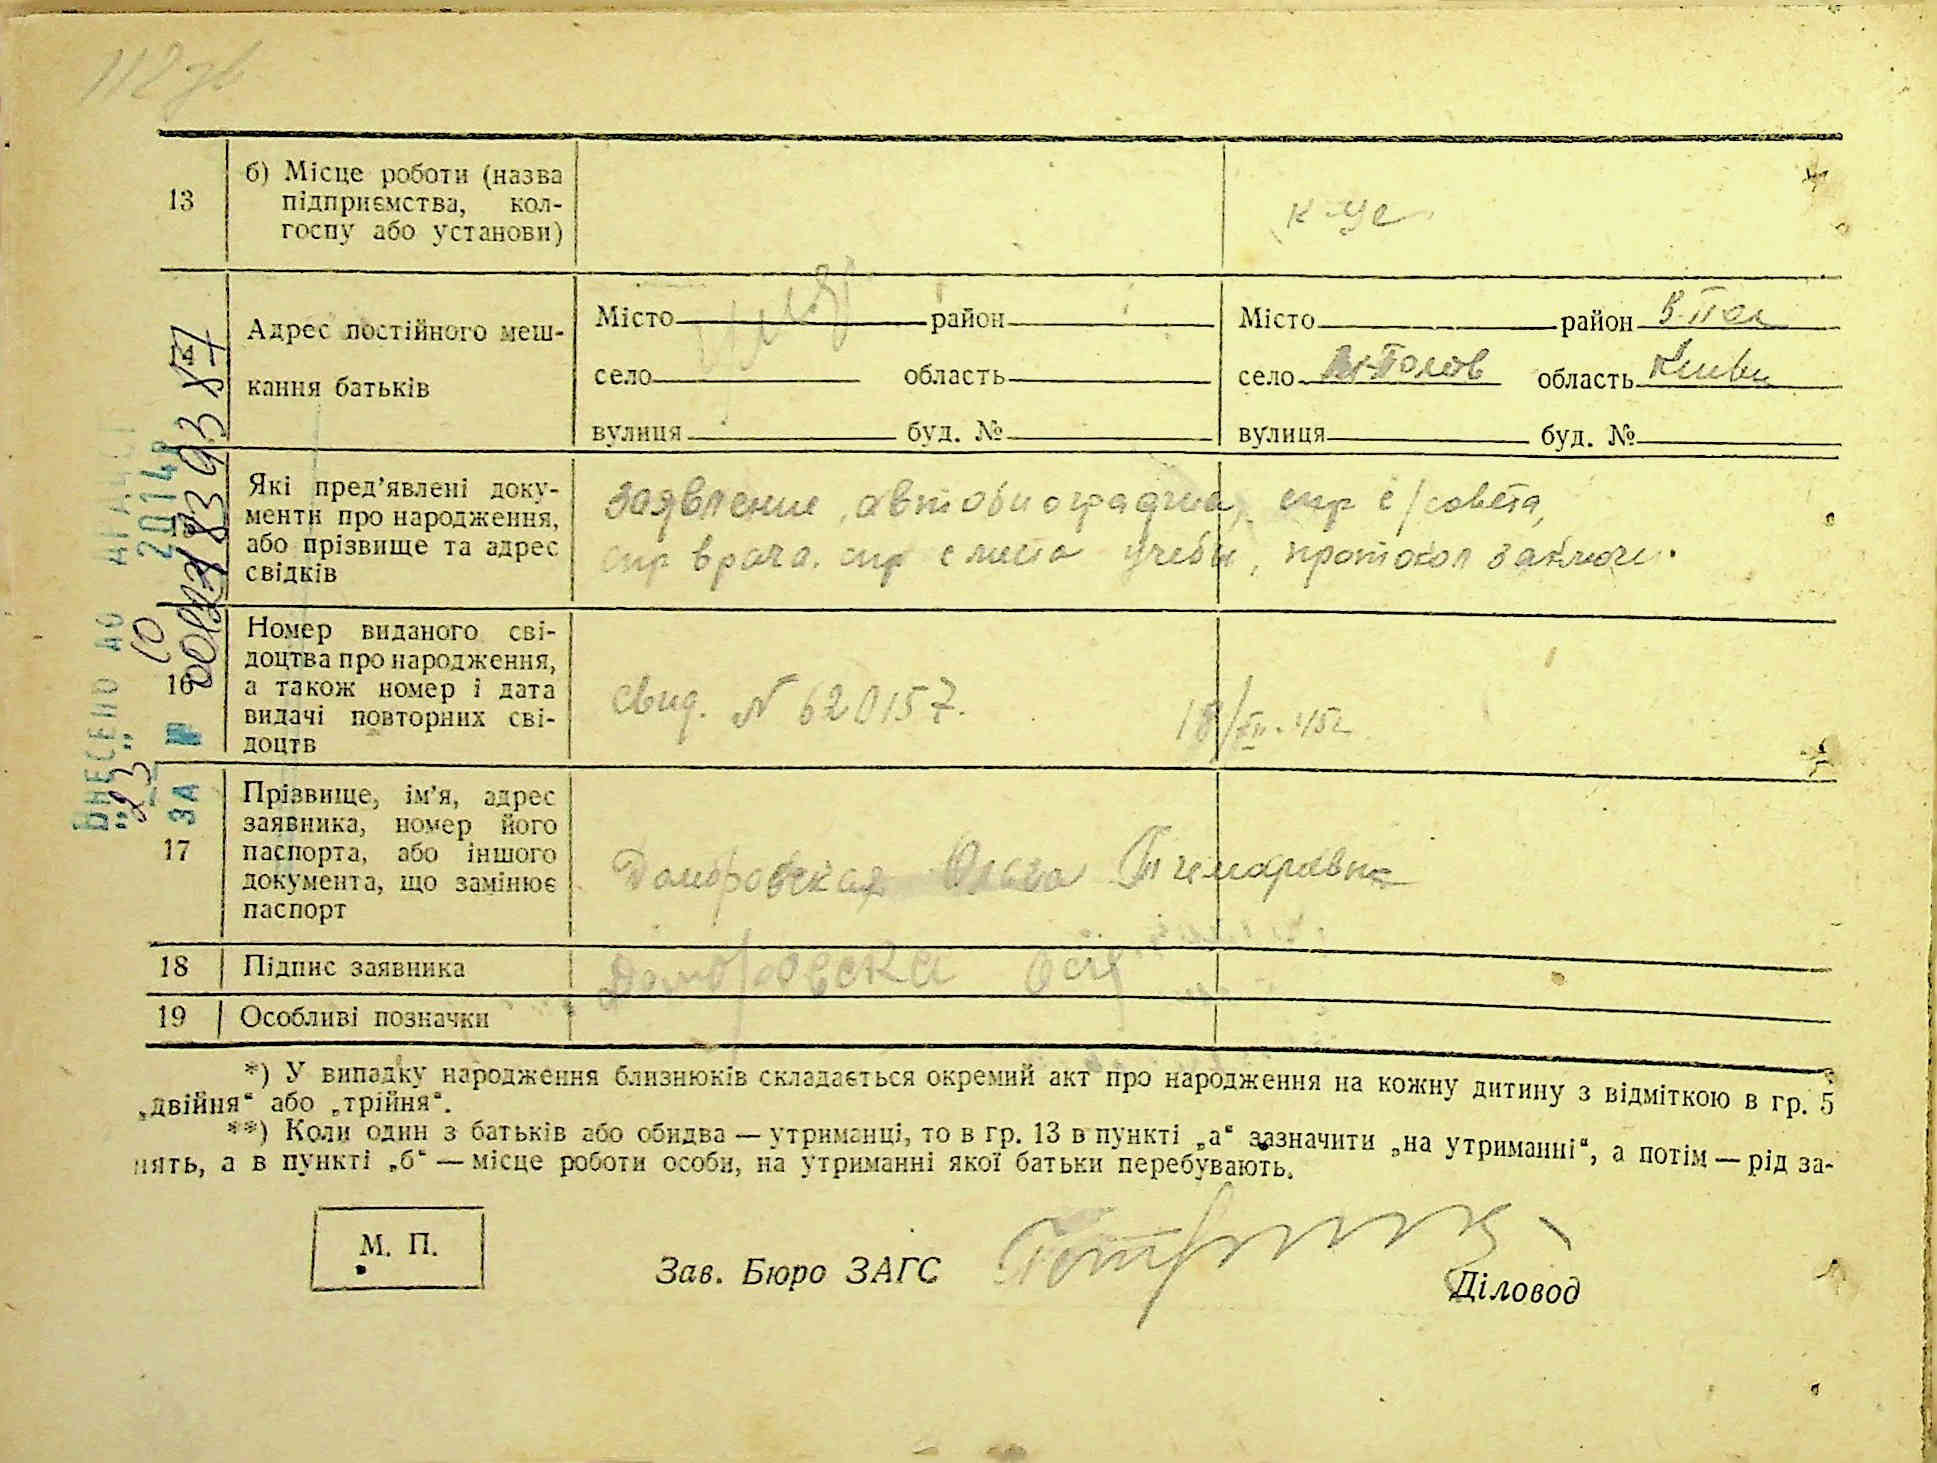 112 зв
13
б) Місце роботи (назва
підприємства, кол-
госпу або установи)
14
Адрес постійного меш-
кання батьків
Місто район
село область
вулиця буд. №
Місто район В-Пол
село область Киевск
вулиця буд. №
Які пред'явлені доку-
менти про народження,
або прізвище та адрес
свідків
заявление, автобиография, спр с/совета,
спр врача, спр с места учебы, протокол заключ.
16
Номер виданого сві-
доцтва про народження,
а також номер і дата
видачі повторних сві-
доцтв
свид. N 620157. 18/XII-45г
17
Прізвище, ім'я, адрес
заявника, номер його
паспорта, або іншого
документа, що замінює
паспорт
Домбровская Ольга
18 Підпис заявника
Домбровска
19 Особливі позначки
ВНЕСЕНО ДО ДРАЦСГ
"23" 10 2014р
ЗА № 00181839387
*) У випадку народження близнюків складається окремий акт про народження на кожну дитину з відміткою в гр. 5
„двійня“ або „трійня“.
**) Коли один з батьків або обидва — утриманці, то в гр. 13 в пункті „а“ зазначити „на утриманні“, а потім — рід за-
нять, а в пункті „б“ — місце роботи особи, на утриманні якої батьки перебувають.
М. П.
Зав. Бюро ЗАГС
Діловод